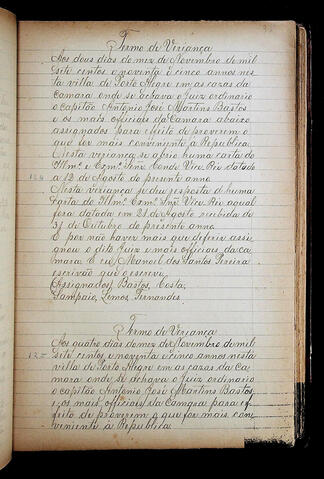 Termo de Veriança
Aos dous dias do mez de Novembro de mil
sete centos e noventa e cinco annos nes
ta villa de Porto Alegre em as cazas da
Camara onde se achava o Juiz ordinario
o capitão Antonio José Martins Bastos
e os mais officiaes da Camara abaixo
assignados para effeito de proverem o
que for mais conveniente á Republica.
N'esta veriança se abrio huma carta do
Illmº e Exmº Snr Conde Vice Rei datada
a 12 de Agosto do presente anno.
Nesta veriança se deu resposta d'huma
Carta do Illmº Exmº Snr Vice Rei a qual
fora datada em 21 de Agosto recibida de
31 de Outubro do presente anno.
E por não haver mais que deferir assi
gnou o dito Juiz e mais officiaes da ca
mara. E eu Manoel dos Santos Pereira
escrivão que o escrevi.
(Assignados) Bastos, Costa,
Sampaio, Lemos, Fernandes.
Termo de Veriança
Aos quatro dias do mez de Novembro de mil
sete centos e noventa e cinco annos nesta
villa de Porto Alegre em as cazas da Ca
mara onde se achava o Juiz ordinario
o capitão Antonio José Martins Bastos
e os mais officiaes da Camara para ef
feito de proverem o que for mais con
veniente á Republica